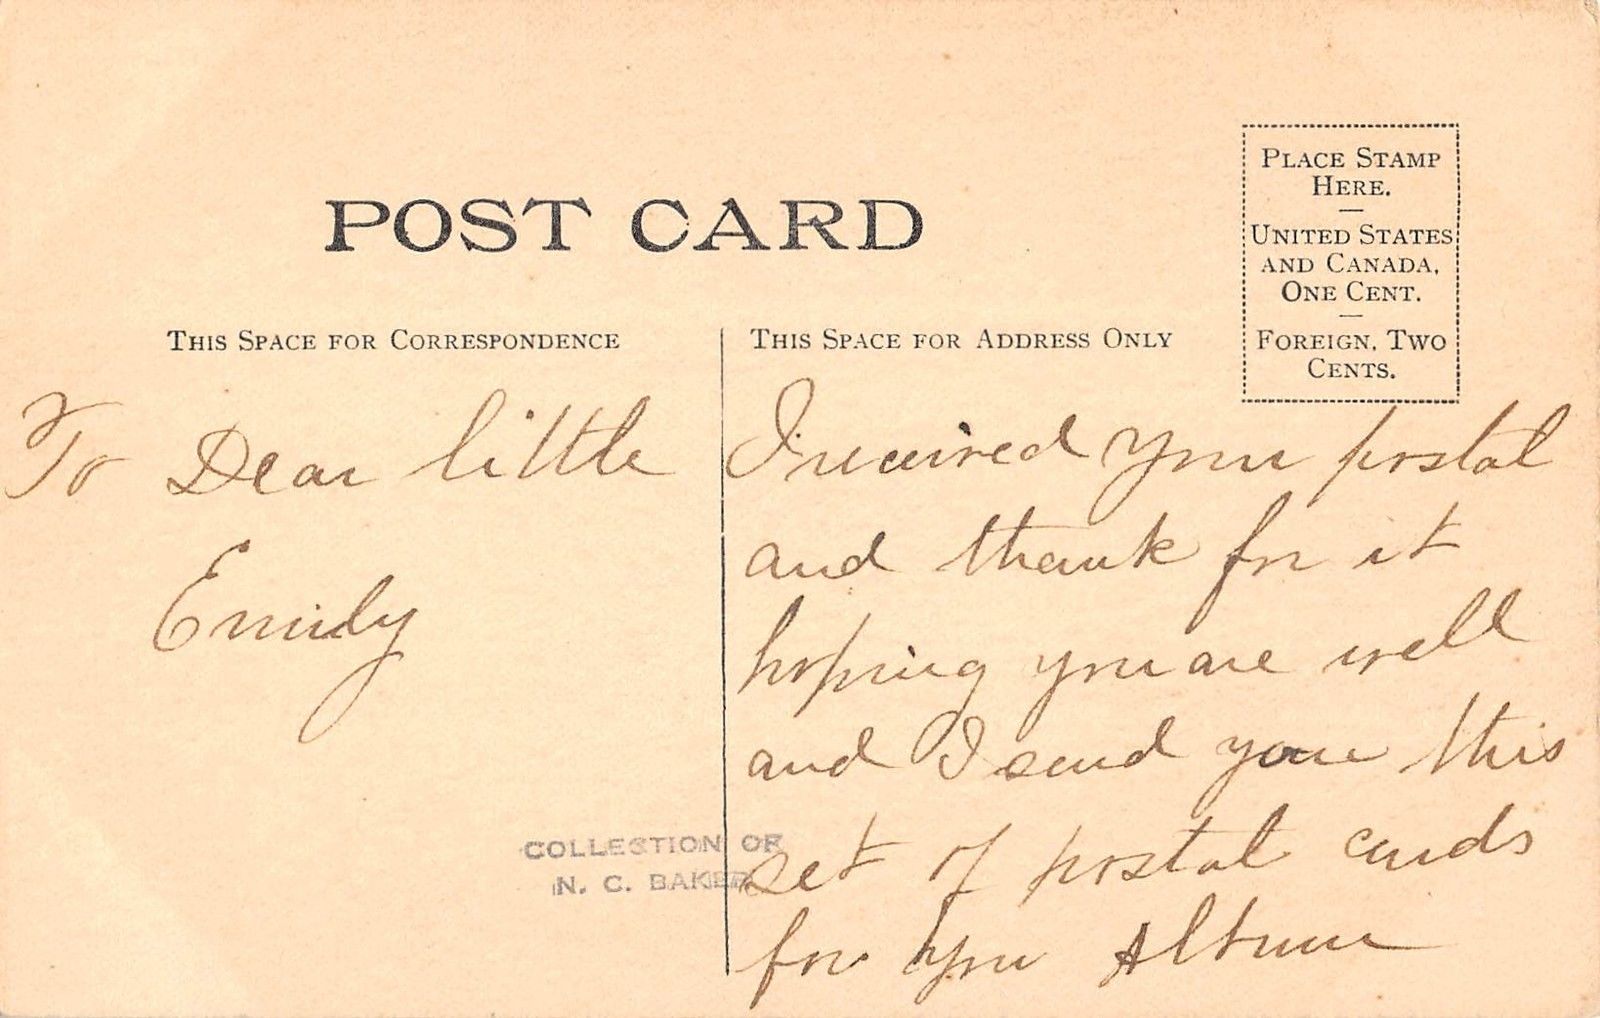 POST CARD
PLACE STAMP
HERE.
UNITED STATES
AND CANADA,
ONE CENT.
FOREIGN, TWO
CENTS.
THIS SPACE FOR CORRESPONDENCE
To Dear little
Emily
THIS SPACE FOR ADDRESS ONLY
I received your postal
and thank for it
hoping you are well
and I send you this
set of postal cards
for your Album
COLLECTION OF
N. C. BAKER